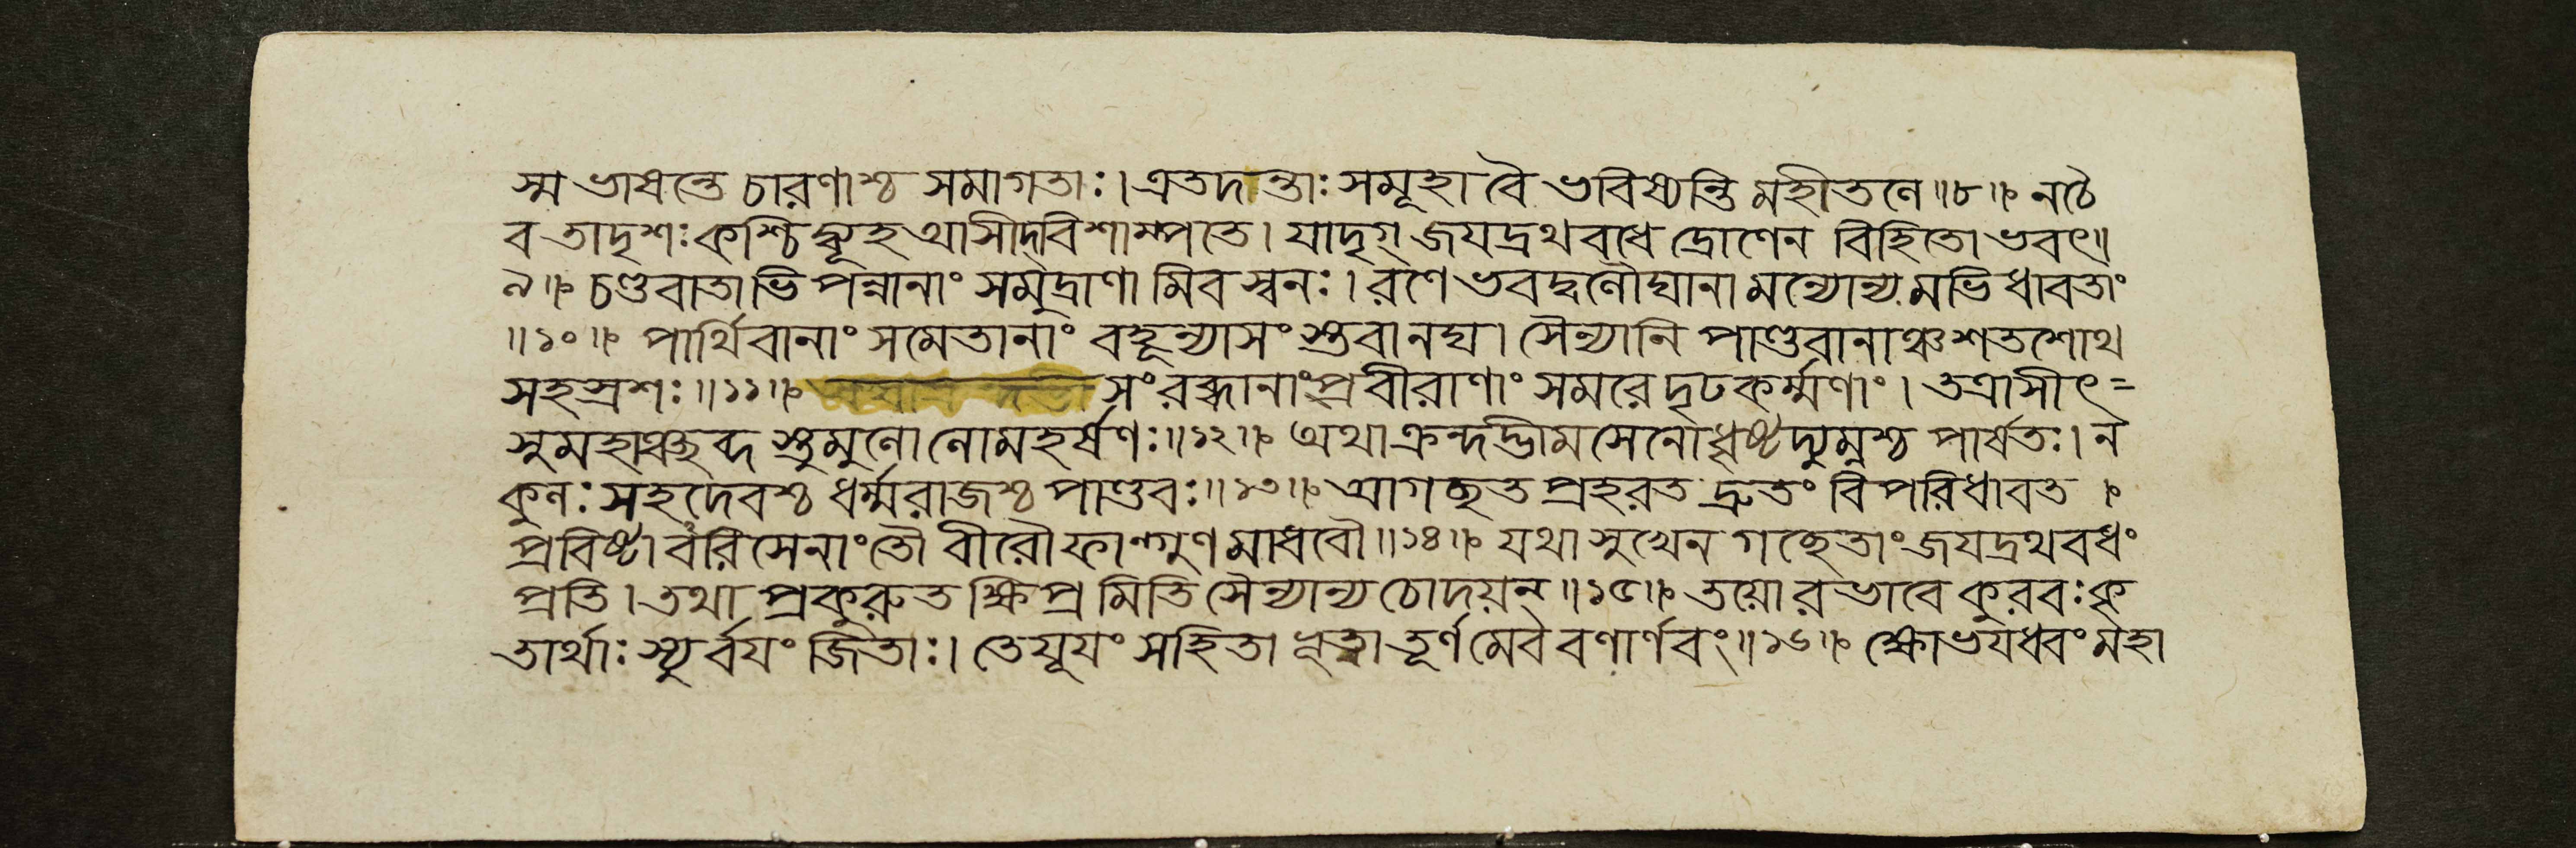 স্ম ভাষন্তে চারণাশ্চ সমাগতাঃ। এতদন্তাঃ সমূহা বৈ ভবিষ্যন্তি মহীতলে॥৮॥ নচৈ
ব তাদৃশঃ কশ্চিদ্ব্যূহ আসীদ্বিশাম্পতে। যাদৃগ্ জযদ্রথবধে দ্রোণেন বিহিতো ভবৎ॥
৯॥ চণ্ডবাতাভিপন্নানাং সমুদ্রাণামিব স্বনঃ। রণে ভবদ্বলৌঘানামন্যোন্যমভিধাবতাং
॥১০॥ পার্থিবানাং সমেতানাং বহূন্যাসং স্তুবানঘ। সৈন্যানি পাণ্ডবানাঞ্চ শতশোথ
সহস্রশঃ॥১১॥ সংরব্ধানাং প্রবীরাণাং সমরে দৃঢকর্ম্মণাং। তত্রাসীৎ=
সুমহাঞ্ছব্দ স্তুমুলোলোমহর্ষণঃ॥১২॥ অথাক্রন্দদ্ভীমসেনো ধৃষ্টদ্যুম্নশ্চ পার্ষতঃ। ন
কুলঃ সহদেবশ্চ ধর্ম্মরাজশ্চ পাণ্ডবঃ॥১৩॥ আগচ্ছত প্রহরত দ্রুতং বিপরিধাবত ।
প্রবিষ্টাবরিসেনাং তৌ বীরৌ ফাল্গুণমাধবৌ॥১৪॥ যথা সুখেন গচ্ছেতাং জযদ্রথবধং
প্রতি। তথা প্রকুরুত ক্ষিপ্রমিতি সৈন্যান্যচোদয়ন্॥১৫॥ তয়োরভাবে কুরবঃ কৃ
তার্থাঃ স্যুর্বযং জিতাঃ। তে যূযং সহিতা ভূত্বা তূর্ণমেব বলার্ণবং॥১৬॥ ক্ষোভযধ্বং মহা